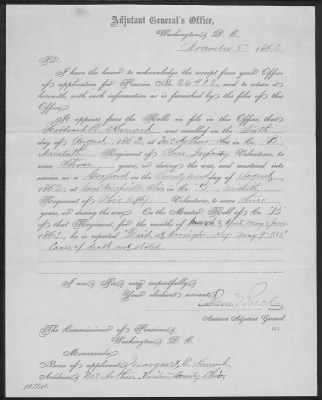 Adjutant General's Office,
Washington, D. C.
November 5th 1863
Sir:
I have the honor to acknowledge the receipt from your Office
of application for Pension No. 26,722, and to return it
herewith, with such information as is furnished by the files of this
Office.
It appears from the Rolls on file in this Office, that
was enrolled on the
day of August, 1862, at McArthur O. in Co. B,
Regiment of Ohio Infy Volunteers, to
serve three years, or during the war, and mustered into
service as a Corporal on the day of August,
1862, at Ohio, in Co. B,
Regiment of Ohio Infty Volunteers, to serve three
years, or during the war. On the Muster Roll of Co. B
of that Regiment, for the months of May & June,
1863, he is reported "Died at Covington Ky. May 9th 1863"
Cause of death not stated.
I am Sir, very respectfully,
Your obedient servant,
Assistant Adjutant General.
The Commissioner of Pensions,
Washington, D. C.
Memoranda
Name of applicant, Margaret E.
Address, McArthur Vinton County Ohio.